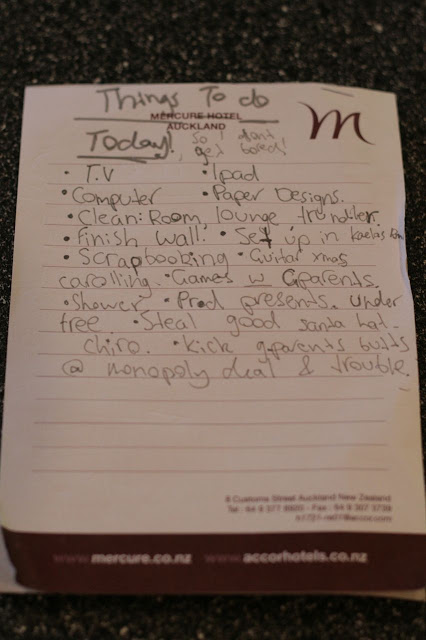 Things To do
MERCURE HOTEL
AUCKLAND
m
Today!, so I dont
get bored!
• T.V • Ipad
• Computer • Paper Designs.
• Clean: Room, lounge trundler.
• Finish wall. • Set up in kaelas rm
• Scrapboobing • Guitar xmas
carolling. • Games w Gparents.
• Shower • Prod presents. Under
tree. • Steal good santa hat.
chiro. • Kick g-parents butts
@ monopoly deal & trouble.
8 Customs Street Auckland New Zealand
Tel : 64 9 377 8920 - Fax : 64 9 307 3739
h1721-re01@accor.com
www.mercure.co.nz www.accorhotels.co.nz